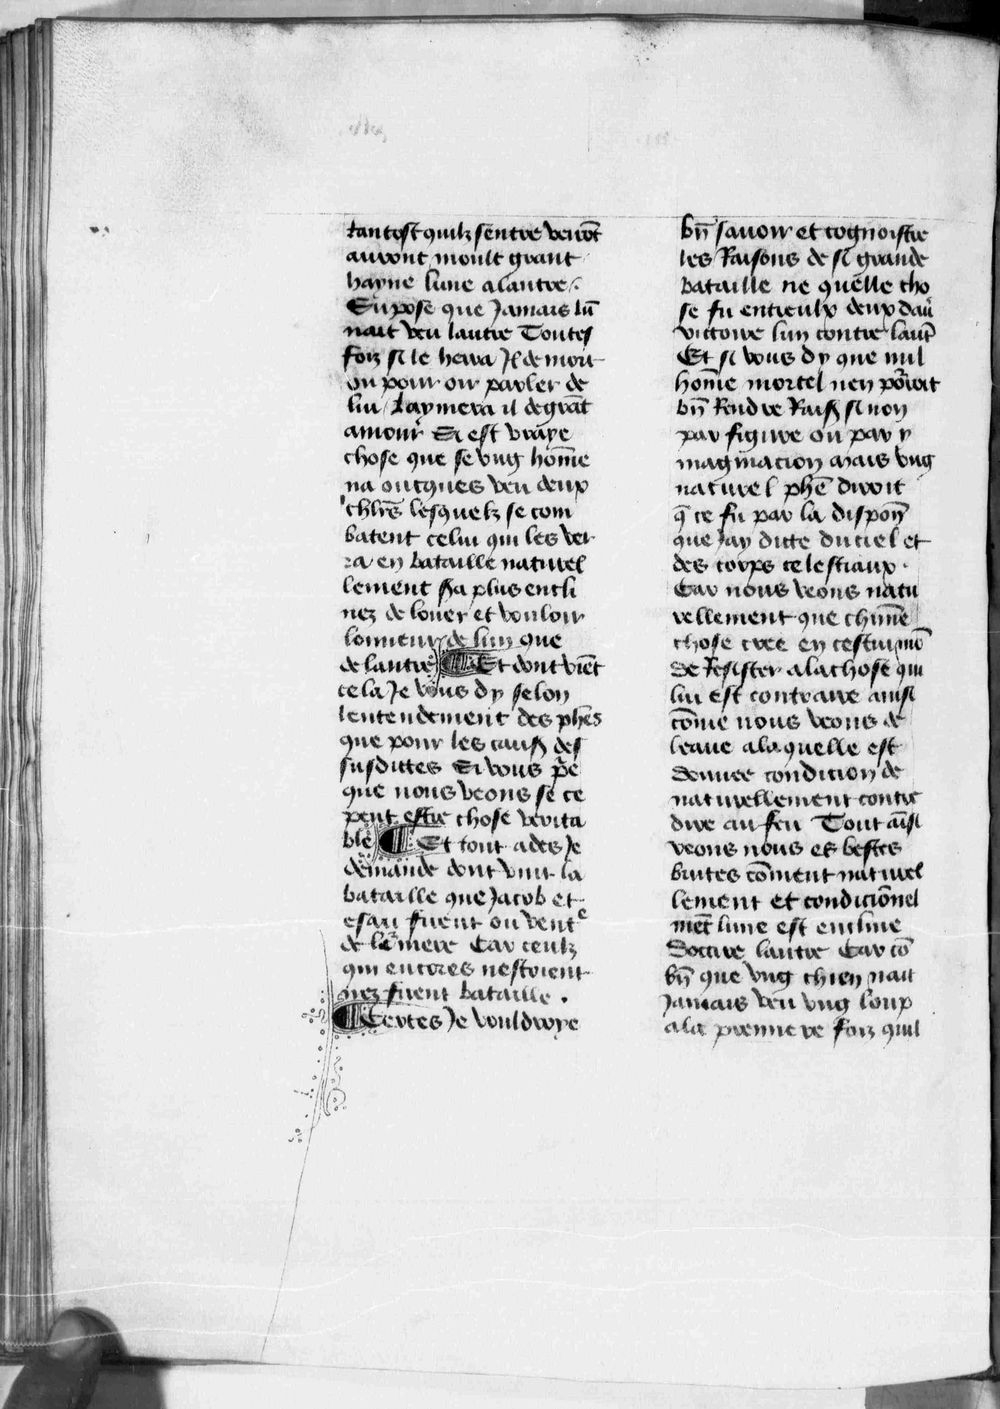 tantost quilz sentre verrōt
auront moult grant
hayne lune a lautre
Supose que Jamais lū
nait veu lautre Toutes
foiz si le herra Jl de mort
ou pour oir parler de
lui laymera il de grāt
amour Si est vraye
chose que se vng hōme
na oncques veu deux
chlrēs lesquelz se com
batent celui qui les ver
ra en bataille naturel
lement sa plus encli
nez de louer et vouloir
lonneur de lun que
de lautre ¶ Et dont viēt
cela Je vous dy selon
lentendement des phēs
que pour les caus des
susdittes Si vous pe
que nous veons se ce
peut estre chose verita
ble ¶ Et tout ades Je
demande dont vint la
bataille que Jacob et
esau firent ou vent̄e
de lē mere Car ceulz
qui encores nestoient
nez firent bataille .
¶ Certes Je vouldroye
bn̄ sauoir et cognoistre
les Raisons de si grande
bataille ne quelle cho
se fu entreulx deux dau
victoire lun contre lautr̄
Et si vous dy que nul
hōme mortel nen poroit
bn̄ Rendre Rais si non
par figure ou par y
maginacion mais vng
naturel phē diroit
q̄ ce fu par la dispon̄
que Jay ditte du ciel et
des corps celestiaux .
Car nous veons natu
rellement que chūne
chose cree en cestui mō
de Resister a la chose qui
lui est contraire ainsi
cōme nous veons de
leaue a laquelle est
donnee condicion de
naturellement contre
dire au feu Tout aīsi
veons nous es bestes
brutes cōment naturel
lement et condiciōnel
mēt lune est encline
doccire lautre Car cō
bn̄ que vng chien nait
Jamais veu vng loup
a la premiere foiz quil